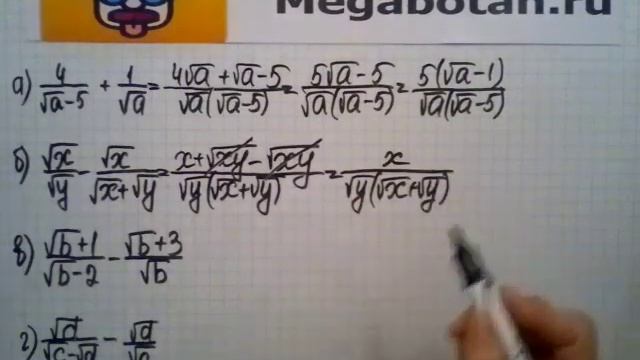 Megabotan.ru
а) 4/(√a-5) + 1/√a = (4√a+√a-5)/(√a(√a-5)) = (5√a-5)/(√a(√a-5)) = 5(√a-1)/(√a(√a-5))
б) √x/√y - √x/(√x+√y) = (x+√xy-√xy)/(√y(√x+√y)) = x/(√y(√x+√y))
в) (√b+1)/(√b-2) - (√b+3)/√b
г)